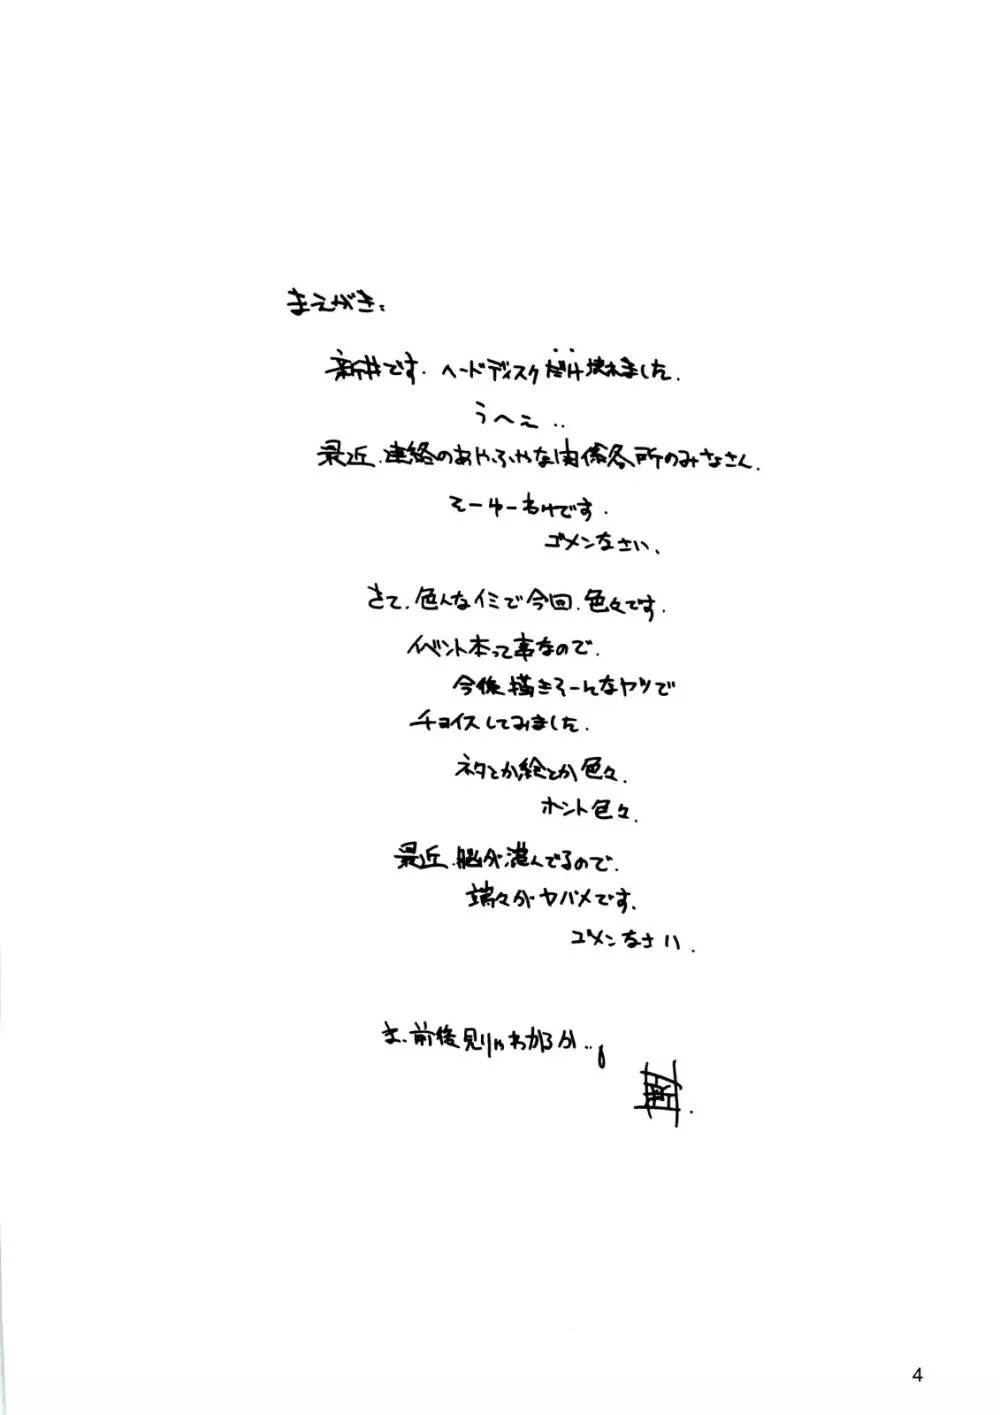 まえがき、
新井です. ヘードディスクだけ壊れました.
うへぇ..
最近.連絡のあやふやな関係各所のみなさん.
そーゆーわけです.
ゴメンなさい、
さて.色んなイミで今回.色々です.
イベント本って事なので.
今後描きそーんなヤツで
チョイスしてみました.
ネタとか絵とか色々.
ホント色々.
最近.脳が混んでるので.
端々がヤバメです.
ゴメンなさい.
ま、前後見りゃわかるか..。
4